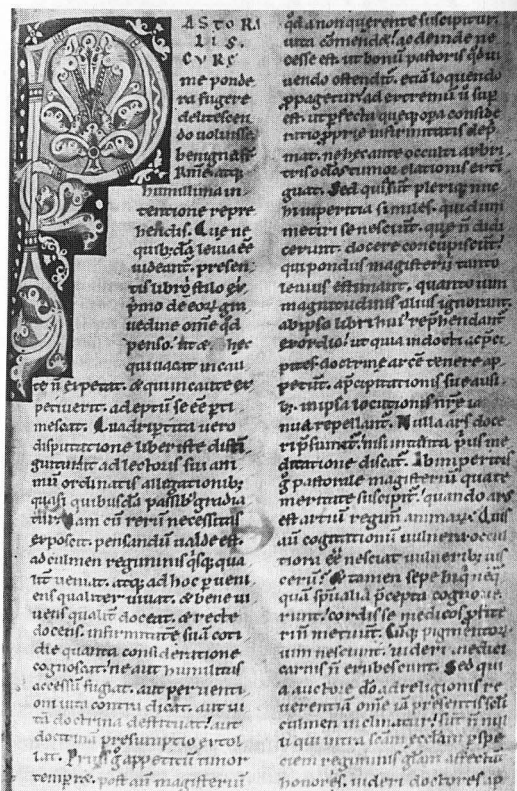 PASTORA
LIS.
CVRE
me ponde
ra fugere
delitescen
do voluisse
benigna fr̄
Kme atq;
humillima in
tentione repre
hendis. Que ne
quibꝰdā leuia eē
uideant. presen
tis libri stilo ex
p̄mo de eoꝝ gra
uedine om̄e qd̄
penso. ut & hec
qui uacat incau
te n̄ expetat. & qui incaute ex
petiuerit. adeptū se eē p̄ti
mescat. Quadriptita uero
disputatione liber iste disti
guitur. ut ad lectoris sui ani
mū ordinatis allegationibꝫ
quasi quibusdā passibꝫ gradia
tur. Nam cū rerū necessitas
exposcit. pensandū ualde est.
ad culmen regiminis qisq; qua
lit̄ ueniat. atq; ad hoc p̄ueni
ens qualiter uiuat. & bene ui
uens qualit̄ doceat. & recte
docens. infirmitate suā coti
die quanta consideratione
cognoscat. ne aut humilitas
accessū fugiat. aut peruenti
oni uita contradicat. aut ui
tā doctrina destituat. aut
doctrinā presumptio extol
lat. Prius g̊ appetitū timor
tempret. post aū magisteriū
qd̄ a non querente suscipitur.
uita cōmendet. ac deinde ne
cesse est ut bonū pastoris qd̄ ui
uendo ostendit̄. etiā loquendo
ꝓpagetur. ad extremū ū sup
est. ut ꝑfecta queq; opa conside
ratio ꝓprie infirmitatis dep̄
mat. ne hec ante occulti arbi
tris oclōs tumor elationis exti
guat. Sed qui sunt pleriq; m̄
h inperitia similes. qui dum
metiri se nesciunt. que n̄ didi
cerunt. docere concupiscunt.
qui pondus magisterii tanto
leuius estimant. quanto uim
magnitudinis illius ignorant.
ab ipso libri hui' rep̄hendant̄
exordio. ut quia indocti ac p̄ci
pites doctrine arcē tenere ap
petunt. a p̄cipitationis sue ausi
bꝫ. in ipsa locutionis nr̄e ia
nua repellant̄. Nulla ars doce
ri p̄sumit̄. nisi intenta p̄us me
ditatione discat̄. Ab imperitis
g̊ pastorale magisteriū qua te
meritate suscipit̄. quando ars
est artiū regim̄ animaꝝ. Quis
aū cogitationū uulnera occul
tiora eē nesciat uulneribꝫ uis
cerū? & tamen sepe hi q neq;
quā sp̄ualia p̄cepta cognoue
runt. cordis se medicos ꝓfite
ri n̄ metuūt. Cū q pigmentoꝝ
uim nesciunt. uideri medici
carnis n̄ erubescunt. Sed qui
a auctore dō ad religionis re
uerentiā om̄e iā presentis scl̄i
culmen inclinatur. sunt n̄ nul
li qui intra scam ecclam p̄ spe
ciem regiminis glam affectant
honoris. uideri doctores ap